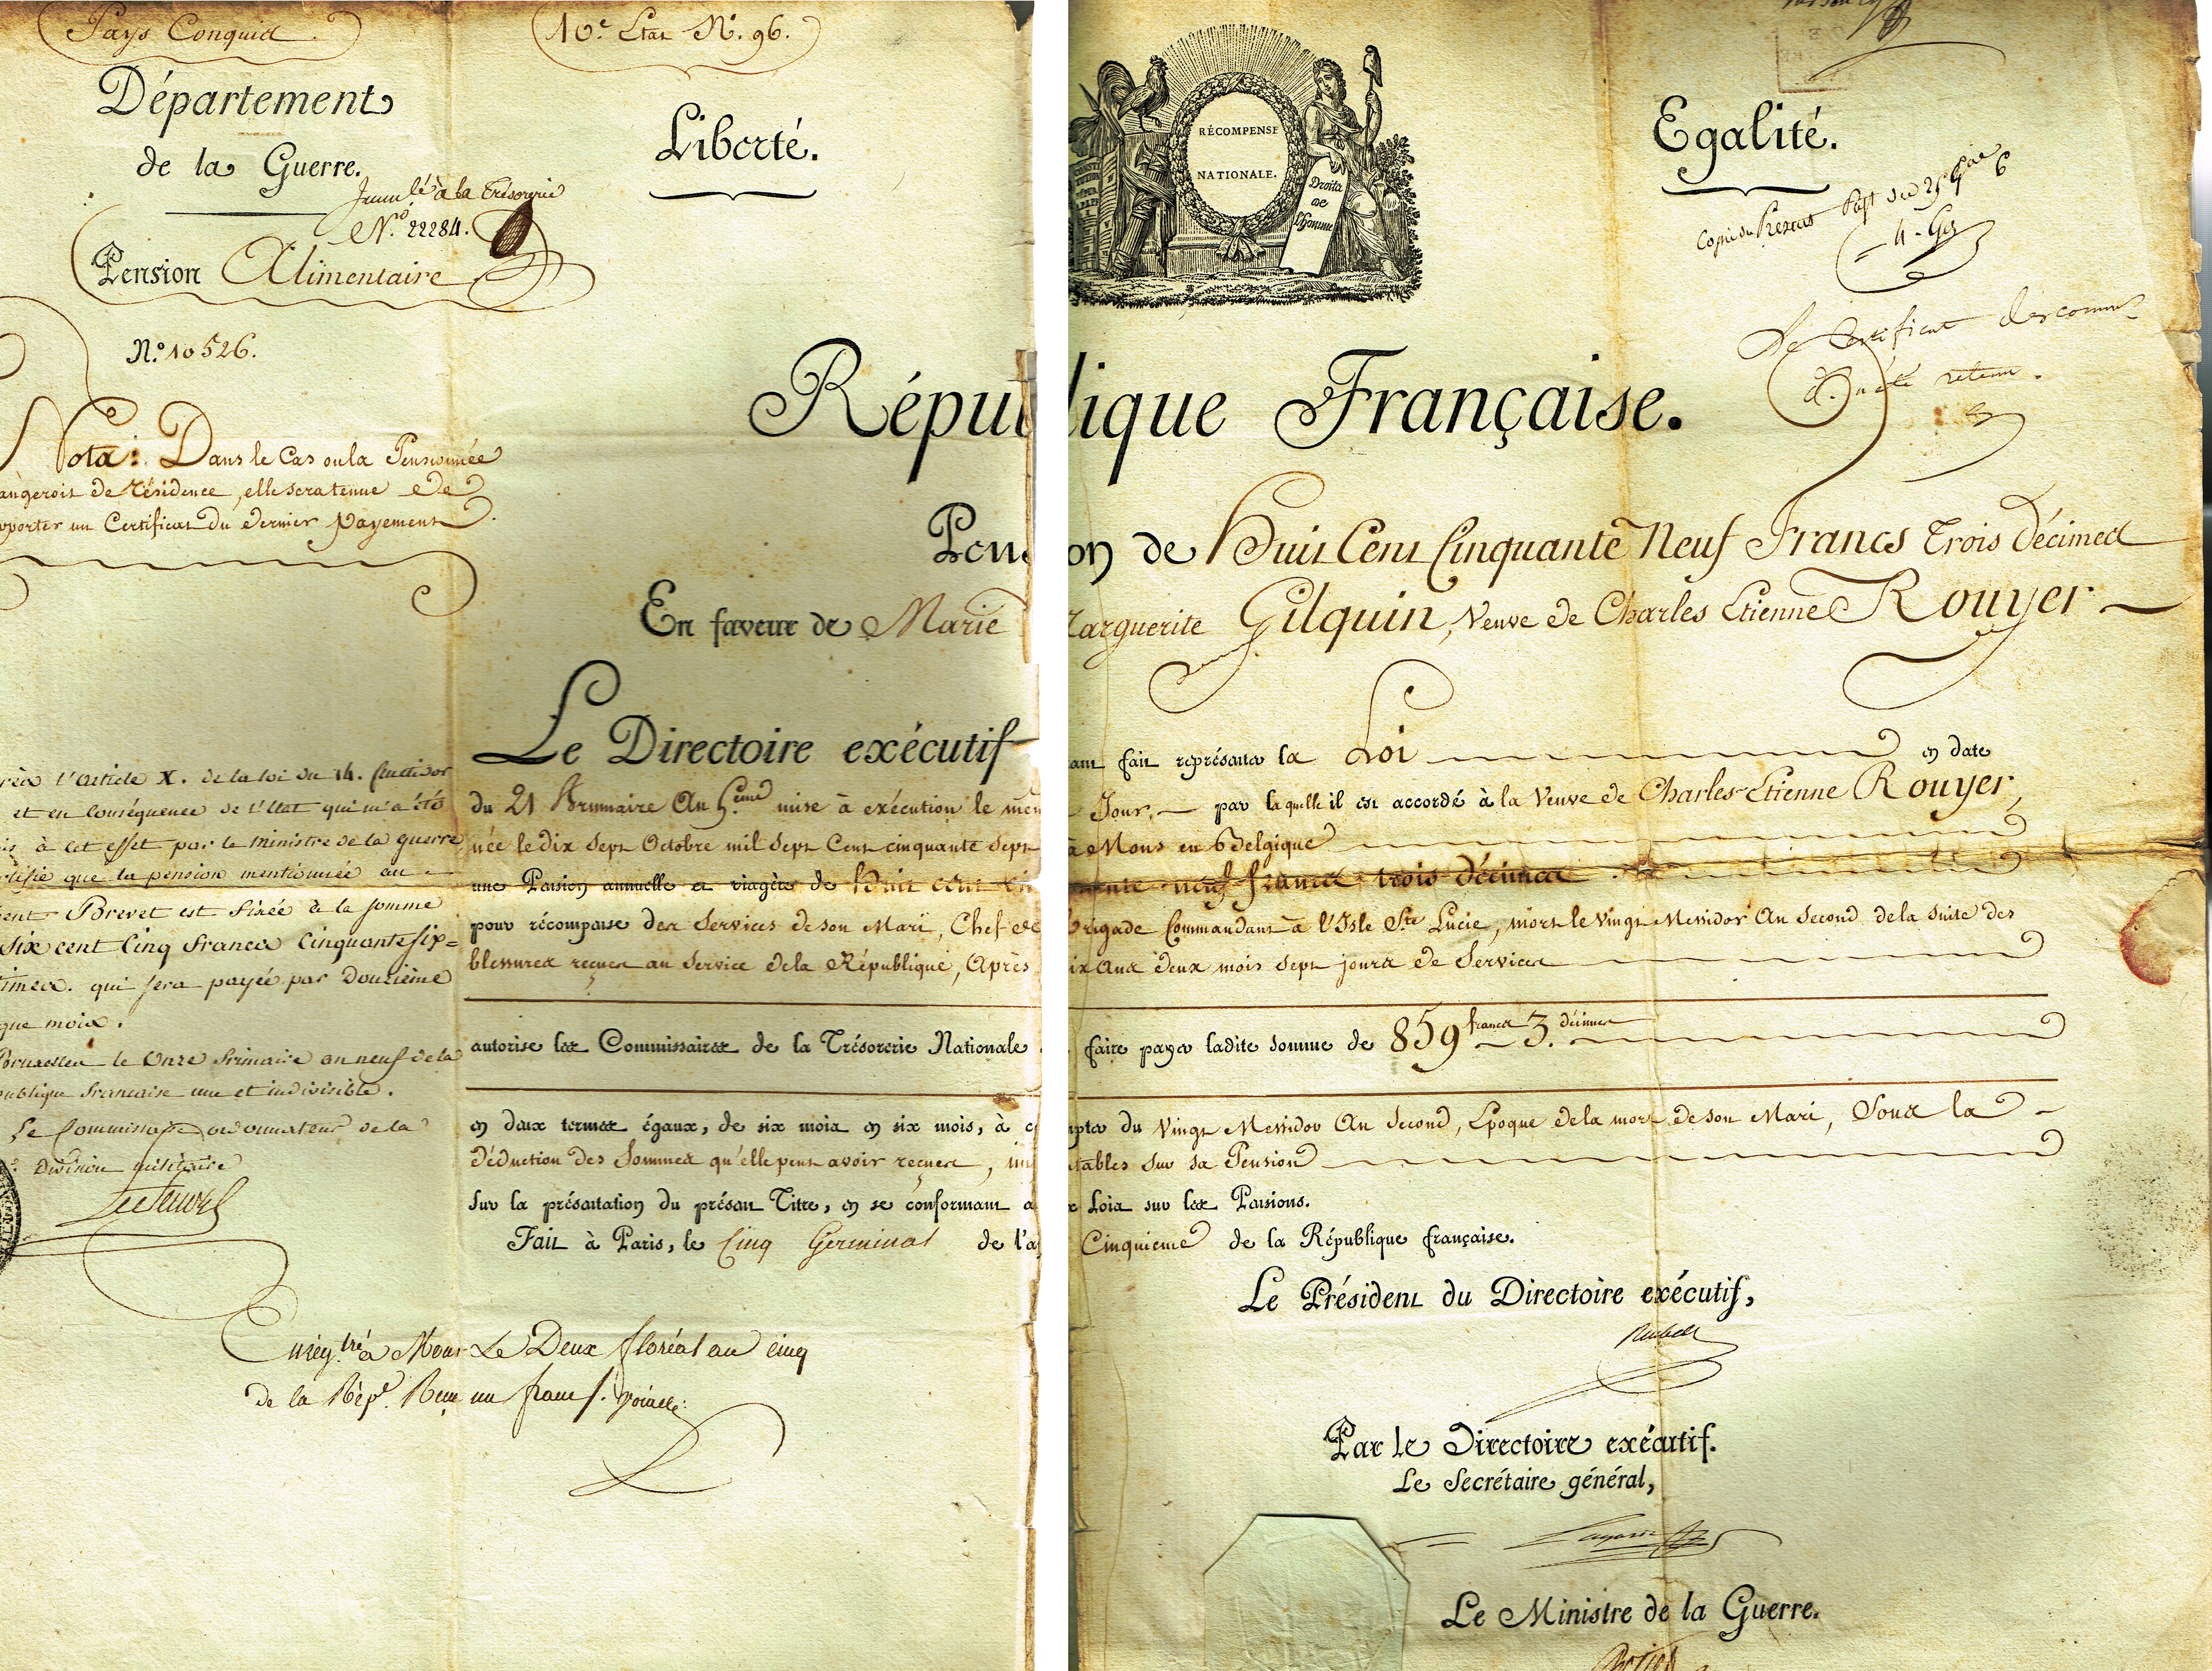 Pays Conquis.
10.e Etat N.o 96.
Département
de la Guerre.
à la Trésorerie
N.o 22284.
Pension Alimentaire
N.o 10526.
Liberté.
RÉCOMPENSE
NATIONALE.
Droits
de
l'homme
Egalité.
4
6
Le Certificat
d. retenu.
République Française.
Nota: Dans le Cas ou la Pensionnée
angeroit de résidence, elle sera tenue de
pporter un Certificat du dernier Payement.
Pension de Huit Cent Cinquante Neuf Francs Trois Décimes
En faveur de Marie Marguerite Gilquin, Veuve de Charles Etienne Rouyer
Le Directoire exécutif
ant fait représenter la Loi en date
du 21 Brumaire An 5.eme mise à exécution le mem Jour, par laquelle il est accordé à la Veuve de Charles Etienne Rouyer,
née le Dix Sept Octobre mil Sept Cent cinquante Sept à Mons en Belgique
une Pension annuelle et viagère de huit cent cin ante neuf francs trois décimes
pour récompense des Services de son Mari, Chef de Brigade Commandant à l'Isle Ste Lucie, mort le Vingt Messidor An Second de la Suite des
blessures reçues au Service de la République, Après ix Ans deux mois Sept jours de Services
autorise les Commissaires de la Trésorerie Nationale faire payer ladite somme de 859 francs 3. décimes
en deux termes égaux, de six mois en six mois, à c mpter du Vingt Messidor An Second, Epoque de la mort de son Mari, Sous la
déduction des Sommes qu'elle peut avoir reçues, im tables sur sa Pension
sur la présentation du présent Titre, en se conformant a x Loix sur les Pensions.
Fait à Paris, le Cinq Germinal de l'a Cinquieme de la République française.
l'Article X. de la loi du 14. fructidor
et en conséquence de l'Etat qui m'a été
is à cet effet par le Ministre de la guerre
rtifie que la pension mentionnée au
ent Brevet est fixée à la somme
Six cent Cinq francs Cinquante six
times. qui sera payée par Douzième
que mois.
Bruxelles le Onze frimaire an neuf de la
publique francaise une et indivisible.
Le Commissaire ordonnateur de la
Division militaire
Enreg.tré à Mons Le Deux floréal an cinq
de la Rép.e Reçu un franc
Le Président du Directoire exécutif,
Reubell
Par le Directoire exécutif.
Le Secrétaire général,
Lagarde
Le Ministre de la Guerre.